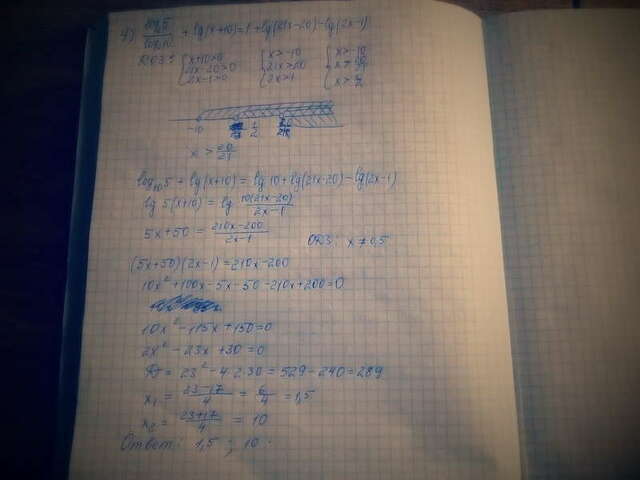 4) + lg(x+10) = 1 + lg(21x-20) - lg(2x-1)
ОДЗ: { x+10>0 { x>-10 { x>-10
21x-20>0 21x>20
2x-1>0 2x>1 x>1/2
-10 1/2 20/21
x > 20/21
log₁₀5 + lg(x+10) = lg 10 + lg(21x-20) - lg(2x-1)
lg 5(x+10) = lg 10(21x-20)/(2x-1)
5x+50 = (210x-200)/(2x-1) ОДЗ: x ≠ 0,5
(5x+50)(2x-1) = 210x-200
10x²+100x-5x-50-210x+200=0
10x²-115x+150=0
2x²-23x+30=0
D = 23²-4·2·30 = 529-240 = 289
x₁ = (23-17)/4 = 6/4 = 1,5
x₂ = (23+17)/4 = 10
Ответ: 1,5 ; 10.